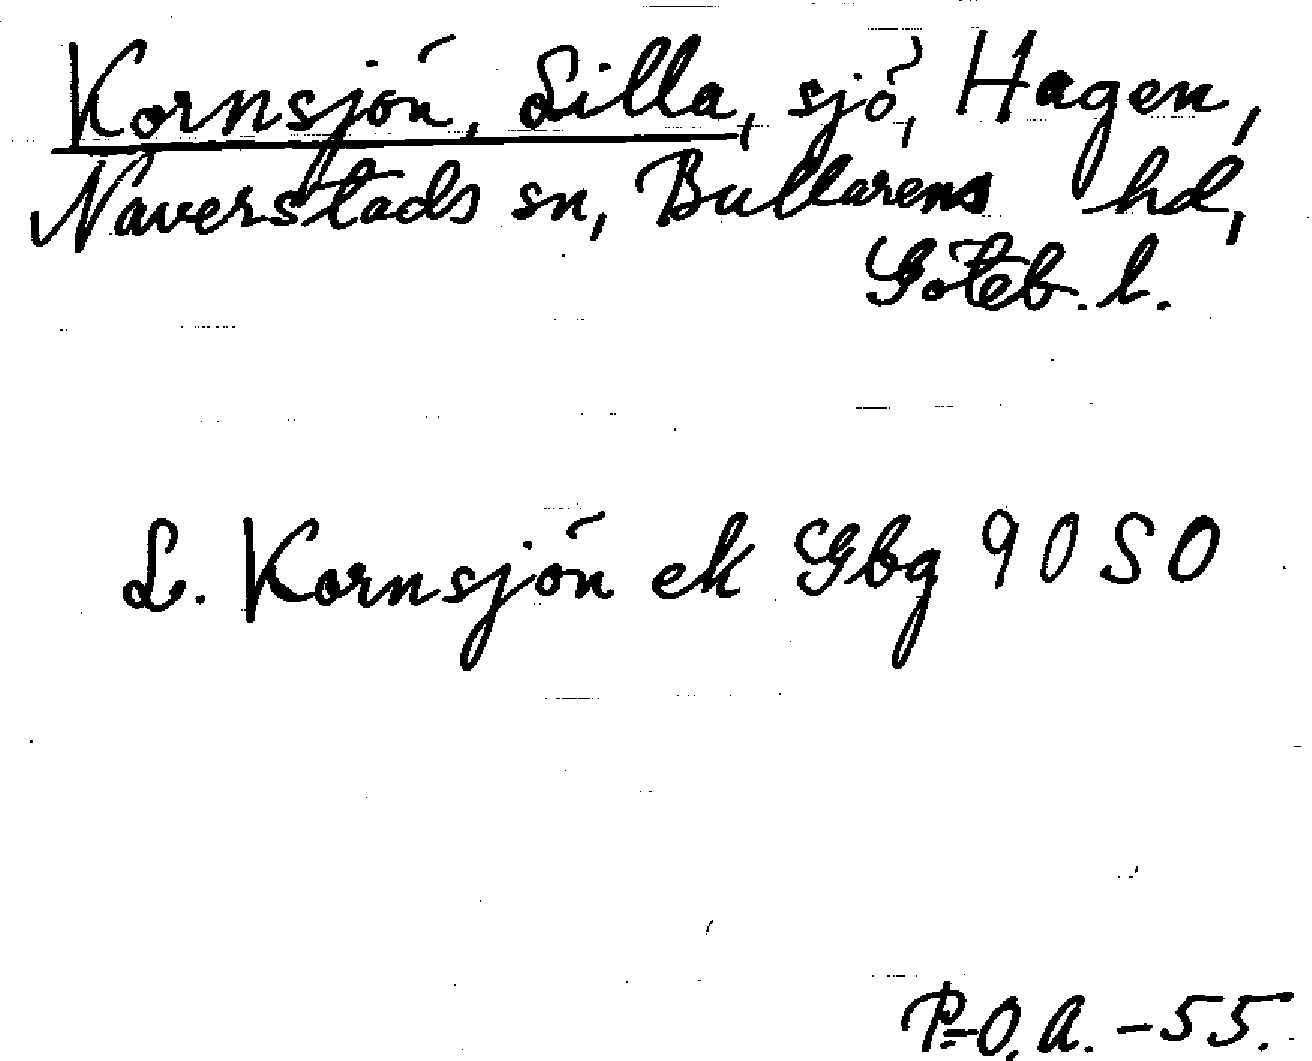 Kornsjön, Lilla, sjö, Hagen,
Naverstads sn, Bullarens hd,
Göteb. l.
L. Kornsjön ek Gbg 90 SO
P-O. A. -55.